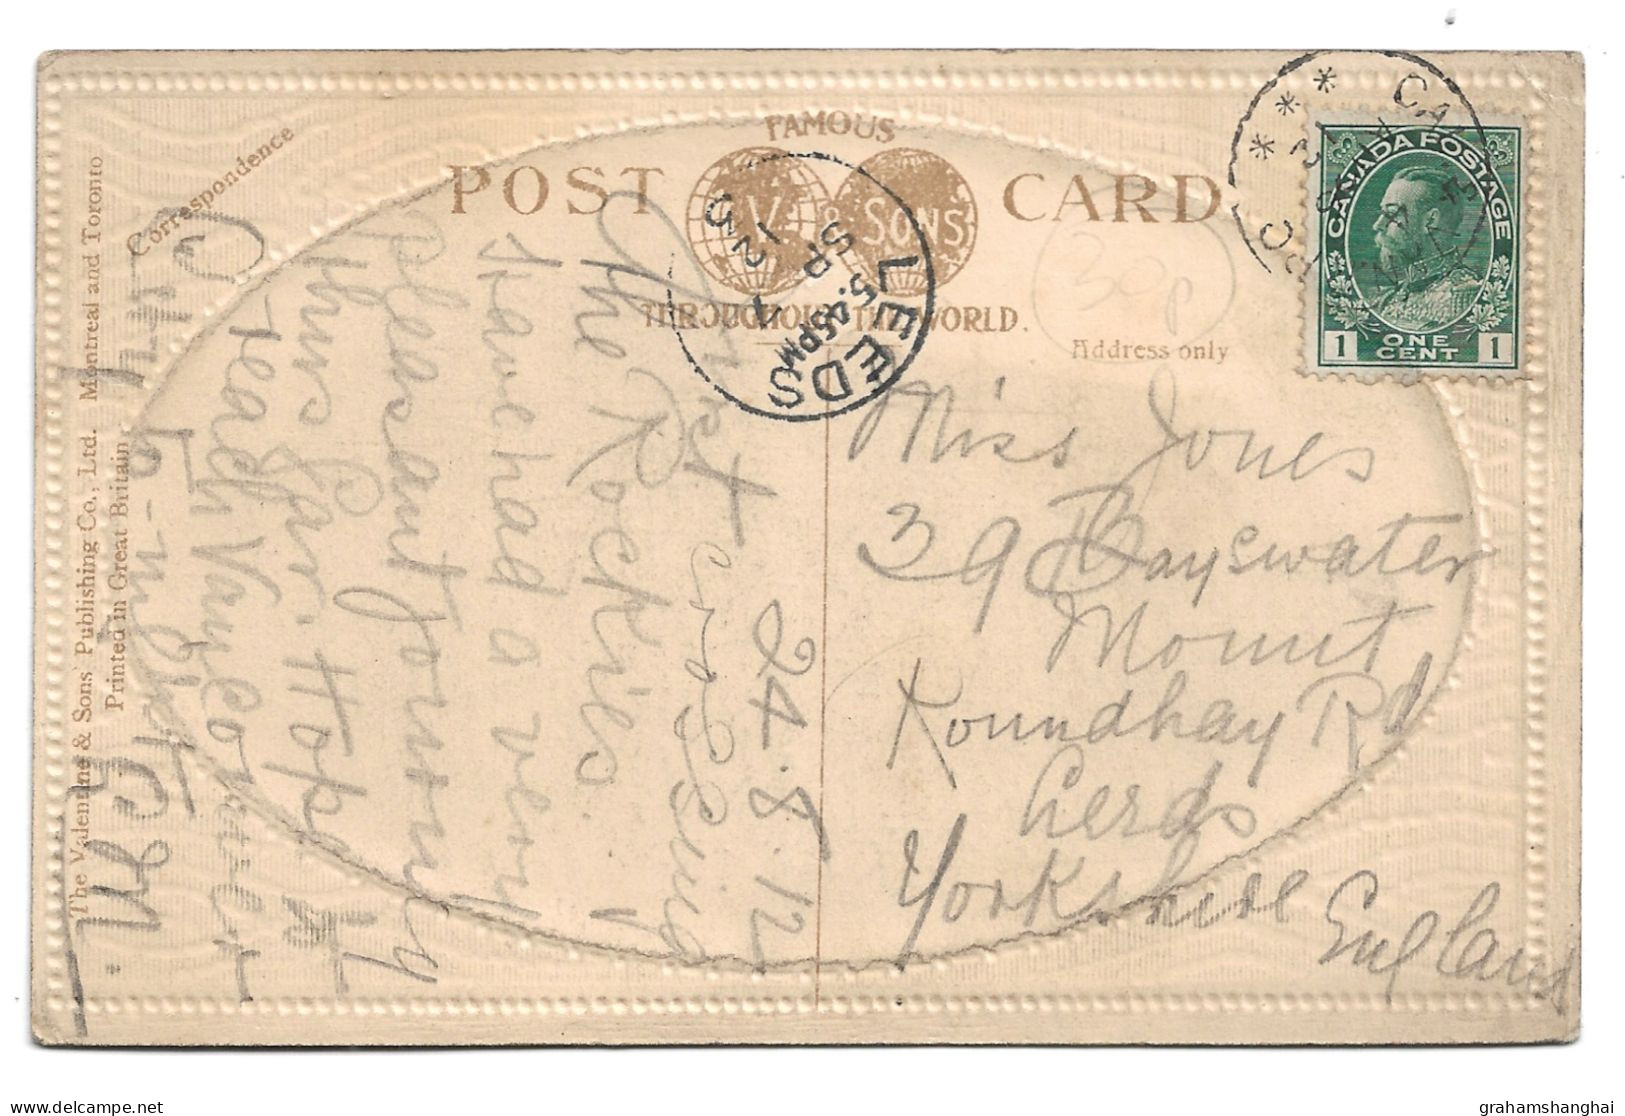 FAMOUS
POST CARD
V. & SONS
THROUGHOUT THE WORLD.
Correspondence
Address only
The Valentine & Sons' Publishing Co., Ltd. Montreal and Toronto
Printed in Great Britain
CANADA POSTAGE
1 ONE CENT 1
LEEDS
5.45PM
SP
12
30p
24.8.12
Just crossing
the Rockies.
have had a very
pleasant journey
thus far. Hope
reach Vancouver
City to-night
Miss Jones
39 Bayswater
Mount
Roundhay Rd
Leeds
Yorkshire
England
grahamshanghai